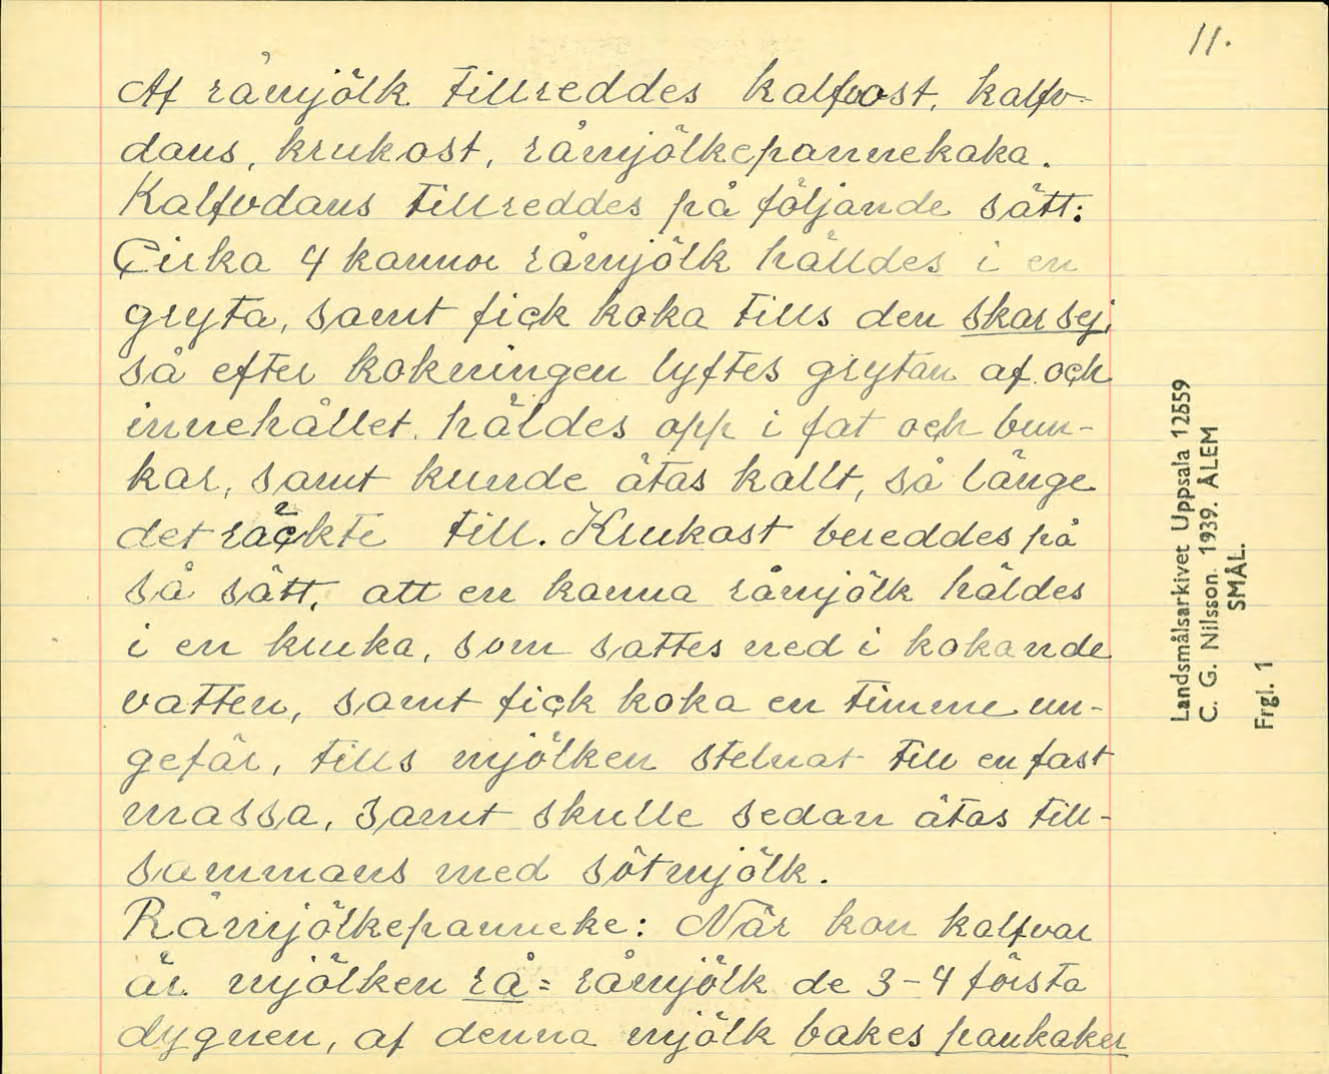 11.
Af råmjölk tillreddes kalfvost, kalfv-
dans, krukost, råmjölkepannekaka.
Kalfvdans tillreddes på följande sätt:
Cirka 4 kannor råmjölk hälldes i en
gryta, samt fick koka tills den skar sej,
så efter kokningen lyftes grytan af och
innehållet häldes opp i fat och bun-
kar, samt kunde ätas kallt, så länge
det räckte till. Krukost bereddes på
så sätt, att en kanna råmjölk häldes
i en kruka, som sattes ned i kokande
vatten, samt fick koka en timme un-
gefär, tills mjölken stelnat till en fast
massa, samt skulle sedan ätas till-
sammans med sötmjölk.
Råmjölkepanneke: När kon kalfvar
är mjölken rå = råmjölk de 3-4 första
dygnen, af denna mjölk bakes pankaker
Landsmålsarkivet Uppsala 12559
C. G. Nilsson. 1939. ÅLEM
SMÅL.
Frgl. 1